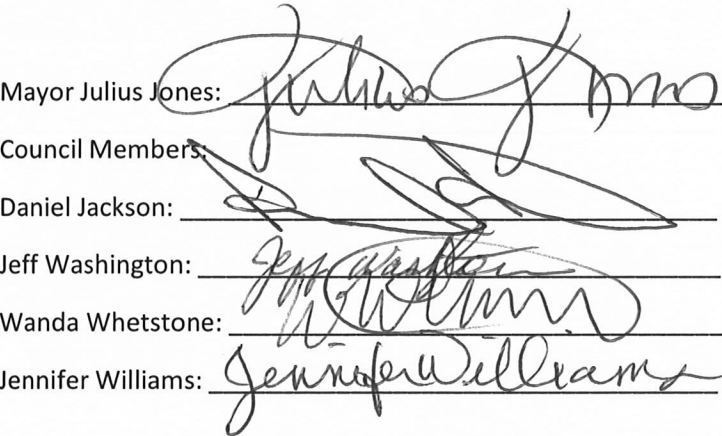 Mayor Julius Jones: Julius Jones
Council Members:
Daniel Jackson:
Jeff Washington: Jeff Washington
Wanda Whetstone:
Jennifer Williams: Jennifer Williams